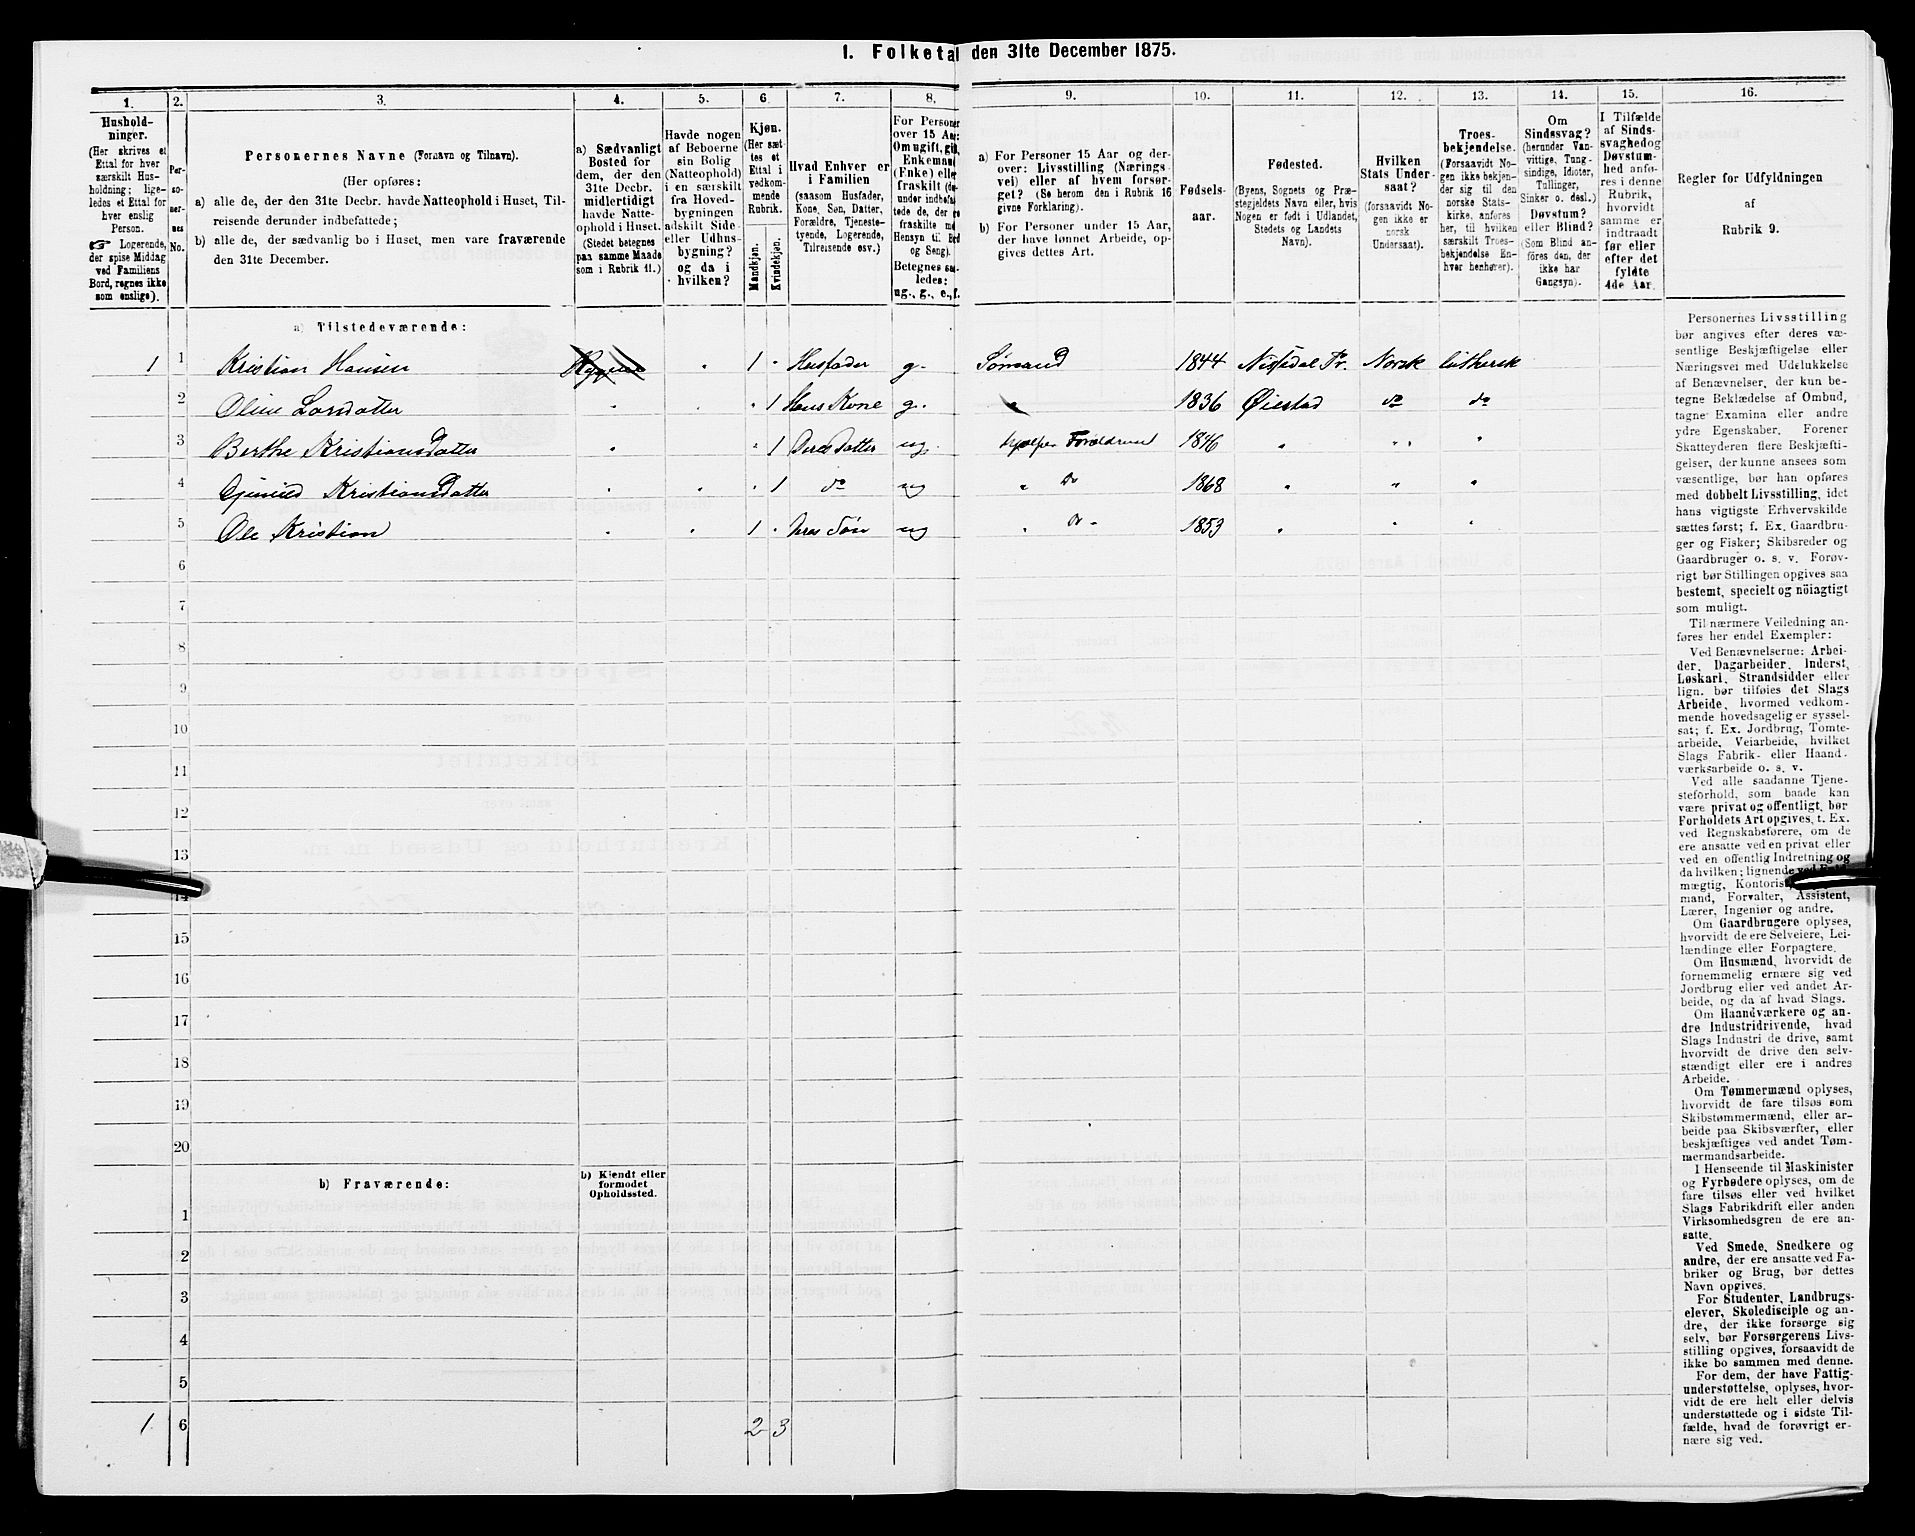 1. Folketal den 31te December 1875.
1. 2. 3. 4. 5. 6. 7. 8. 9. 10. 11. 12. 13. 14. 15. 16.
Hushold-
ninger.
(Her skrives et
Ettal for hver
særskilt Hus-
holdning; lige-
ledes et Ettal for
hver enslig
Person.
☞ Logerende,
der spise Middag
ved Familiens
Bord, regnes ikke
som enslige).
Per-
so-
ner-
nes
No.
Personernes Navne (Fornavn og Tilnavn).
(Her opføres:
a) alle de, der den 31te Decbr. havde Natteophold i Huset, Til-
reisende derunder indbefattede;
b) alle de, der sædvanlig bo i Huset, men vare fraværende
den 31te December.
a) Sædvanligt
Bosted for
dem, der den
31te Decbr.
midlertidigt
havde Natte-
ophold i Huset.
(Stedet betegnes
paa samme Maade
som i Rubrik 11.)
Havde nogen
af Beboerne
sin Bolig
(Natteophold)
i en særskilt
fra Hoved-
bygningen
adskilt Side-
eller Udhus-
bygning?
og da i
hvilken?
Kjøn.
(Her sæt-
tes et
Ettal i
vedkom-
mende
Rubrik.
Mandkjøn.
Kvindekjøn.
Hvad Enhver er
i Familien
(saasom Husfader,
Kone, Søn, Datter,
Forældre, Tjeneste-
tyende, Logerende,
Tilreisende osv.)
For Personer
over 15 Aar:
Om ugift, gift,
Enkemand
(Enke) eller
fraskilt
Betegnes saa-
ledes:
ug., g., e., f.
a) For Personer 15 Aar og der-
over: Livsstilling (Nærings-
vei) eller af hvem forsør-
get? (Se herom den i Rubrik 16
givne Forklaring).
b) For Personer under 15 Aar,
der have lønnet Arbeide, op-
gives dettes Art.
Fødsels-
aar.
Fødested.
(Byens, Sognets og Præ-
stegjeldets Navn eller, hvis
Nogen er født i Udlandet,
Stedets og Landets
Navn).
Hvilken
Stats Under-
saat?
(forsaavidt No-
gen ikke er
norsk
Undersaat).
Troes-
bekjendelse.
(Forsaavidt No-
gen ikke bekjen-
der sig til den
norske Stats-
kirke, anføres
her, til hvilken
særskilt Troes-
bekjendelse En-
hver henhører).
Om
Sindssvag?
(herunder Van-
vittige, Tung-
sindige, Idioter,
Tullinger,
Sinker o. desl.)
Døvstum?
eller Blind?
(Som Blind an-
føres den, der
ikke har
Gangsyn).
I Tilfælde
af Sinds-
svaghed og
Døvstum-
hed anfø-
res i denne
Rubrik,
hvorvidt
samme er
indtraadt
før eller
efter det
fyldte
4de Aar.
Regler for Udfyldningen
af
Rubrik 9.
a) Tilstedeværende:
1 1 Kristian Hansen 1 Husfader g. Sømand 1844 Norsk luthersk
2 Larsdatter 1 Hans Kone g. 1836 Øiestad do do
3 Berthe Kristiansdatter 1 Deres Datter ug. Forældrene 1846
4 Kristiansdatter 1 do ug Do 1868
5 Ole Kristian 1 Søn ug Do 1853
6
7
8
9
10
11
12
13
14
15
16
17
18
19
20
b) Fraværende:
b) Kjendt eller
formodet
Opholdssted.
1
2
3
4
5
1 6 2 3
Personernes Livsstilling
bør angives efter deres væ-
sentlige Beskjæftigelse eller
Næringsvei med Udelukkelse
af Benævnelser, der kun be-
tegne Beklædelse af Ombud,
tagne Examina eller andre
ydre Egenskaber. Forener
Skatteyderen flere Beskjæfti-
gelser, der kunne ansees som
væsentlige, bør han opføres
med dobbelt Livsstilling, idet
hans vigtigste Erhvervskilde
sættes først; f. Ex. Gaardbru-
ger og Fisker; Skibsreder og
Gaardbruger o. s. v. Forøv-
rigt bør Stillingen opgives saa
bestemt, specielt og nöiagtigt
som muligt.
Til nærmere Veiledning an-
føres her endel Exempler:
Ved Benævnelserne: Arbei-
der, Dagarbeider, Inderst,
Løskarl, Strandsidder eller
lign. bør tilføies det Slags
Arbeide, hvormed vedkom-
mende hovedsagelig er syssel-
sat; f. Ex. Jordbrug, Tomte-
arbeide, Veiarbeide, hvilket
Slags Fabrik- eller Haand-
værksarbeide o. s. v.
Ved alle saadanne Tjene-
steforhold, som baade kan
være privat og offentligt, bør
Forholdets Art opgives, t. Ex.
ved Regnskabsførere, om de
ere ansatte ved en privat eller
ved en offentlig Indretning og
da hvilken; lignende ved
mægtig, Kontorist,
mand, Forvalter, Assistent,
Lærer, Ingeniør og andre.
Om Gaardbrugere oplyses,
hvorvidt de ere Selveiere, Lei-
lændinge eller Forpagtere.
Om Husmænd, hvorvidt de
fornemmelig ernære sig ved
Jordbrug eller ved andet Ar-
beide, og da af hvad Slags.
Om Haandværkere og an-
dre Industridrivende, hvad
Slags Industri de drive, samt
hvorvidt de drive den selv-
stændigt eller ere i andres
Arbeide.
Om Tømmermænd oplyses,
hvorvidt de fare tilsøs som
Skibstømmermænd, eller ar-
beide paa Skibsværfter, eller
beskjæftiges ved andet Tøm-
mermandsarbeide.
I Henseende til Maskinister
og Fyrbødere oplyses, om de
fare tilsøs eller ved hvilket
Slags Fabrikdrift eller anden
Virksomhedsgren de ere an-
satte.
Ved Smede, Snedkere og
andre, der ere ansatte ved Fa-
briker og Brug, bør dettes
Navn opgives.
For Studenter, Landbrugs-
elever, Skoledisciple og an-
dre, der ikke forsørge sig
selv, bør Forsørgerens Livs-
stilling opgives, forsaavidt de
ikke bo sammen med denne.
For dem, der have Fattig-
understøttelse, oplyses, hvor-
vidt de ere helt eller delvis
understøttede og i sidste Til-
fælde, hvad de forøvrigt er-
nære sig ved.